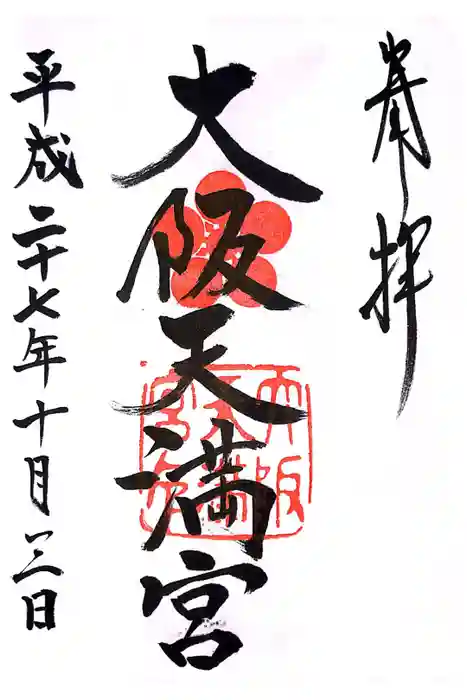 奉拝
大阪天満宮
平成二十七年十月三日
大阪
天満